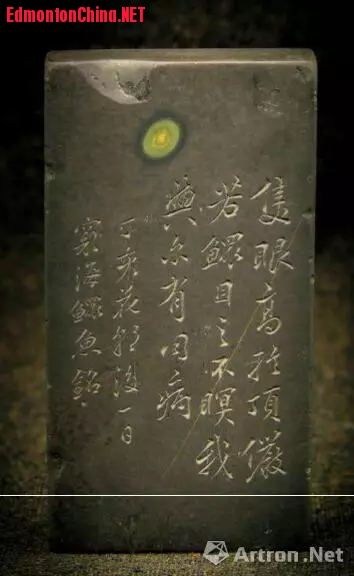 EdmontonChina.NET
隻眼高於頂儼
若鰥目之不瞑我
與尔有同病
丁亥花朝後一日
海鰥魚銘
Artron.Net